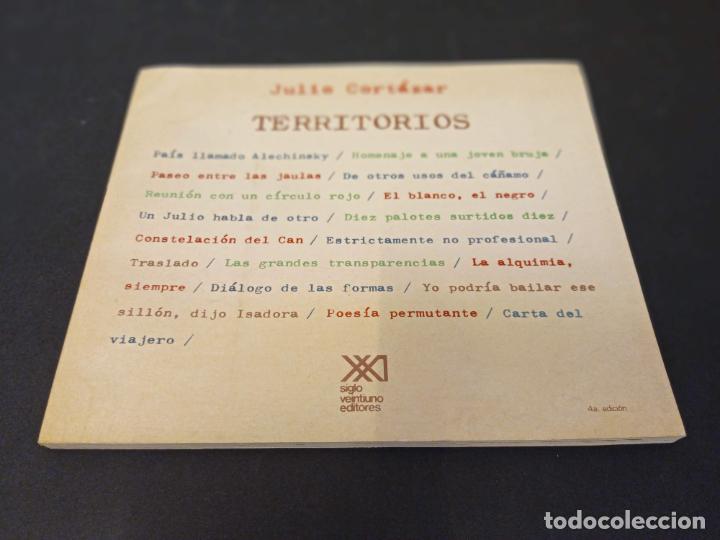 Julio Cortázar
TERRITORIOS
País llamado Alechinsky / Homenaje a una joven bruja /
Paseo entre las jaulas / De otros usos del cáñamo /
Reunión con un círculo rojo / El blanco, el negro /
Un Julio habla de otro / Diez palotes surtidos diez /
Constelación del Can / Estrictamente no profesional /
Traslado / Las grandes transparencias / La alquimia,
siempre / Diálogo de las formas / Yo podría bailar ese
sillón, dijo Isadora / Poesía permutante / Carta del
viajero /
XXI
siglo
veintiuno
editores
4a. edición
todocoleccion